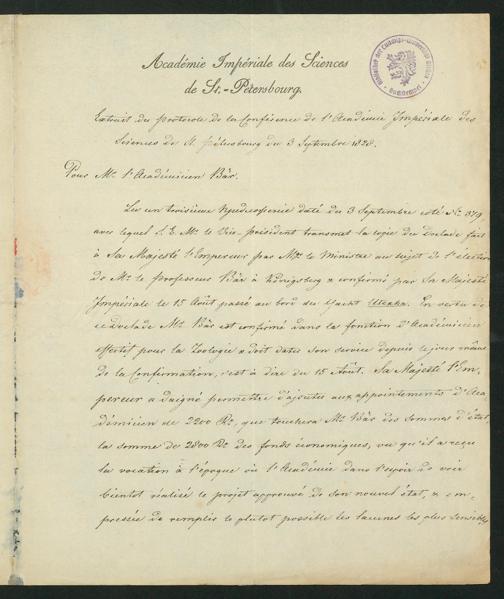 Académie Impériale des Sciences
de St.-Pétersbourg.
Extrait du protocole de la Conférence de l'Académie Impériale des
Sciences de St. Pétersbourg du 3 Septembre 1828.
Pour Mr. l'Académicien Bär.
Lu un troisième daté du 3 Septembre coté No. 879
avec lequel S. E. Mr. le Vice-président transmet la copie du fait
à Sa Majesté l'Empereur par Mr. le Ministre au sujet de l'élection
de Mr. le professeur Bär à Königsberg & confirmé par Sa Majesté
Impériale le 15 Août passé au bord du Yacht En vertu de
ce Mr. Bär est confirmé dans la fonction d'Académicien
effectif pour la Zoologie & doit dater son service depuis le jour même
de la confirmation, c'est à dire du 15 Août. Sa Majesté l'Em,
pereur a daigné permettre d'ajouter aux appointements d'Aca
démicien de 2200 Rs. que touchera Mr. Bär des sommes d'état,
la somme de 2800 Rs. des fonds économiques, vu qu'il a reçu
la vocation à l'époque où l'Académie dans l'espoir de voir
bientôt réalisé le projet approuvé de son nouvel état, & em-
pressée de remplir le plutôt possible les lacunes les plus sensibles